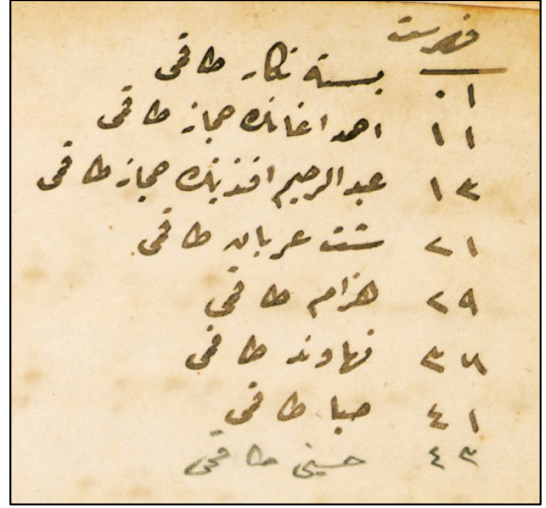 فهرست
٠١ بسته نكار طاقمى
١١ احمد اغانك حجاز طاقمى
١٣ عبد الرحيم افندينك حجاز طاقمى
٢١ شت عربان طاقمى
٢٩ هزام طاقمى
نهاوند طاقمى
٤١ صبا طاقمى
٤٣ حسينى طاقمى